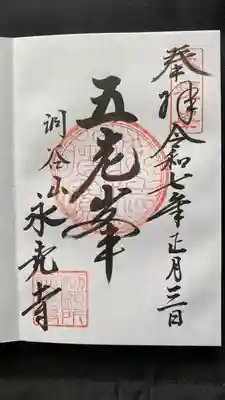 奉拝 令和七年正月三日
五老峯
洞谷山
永光寺